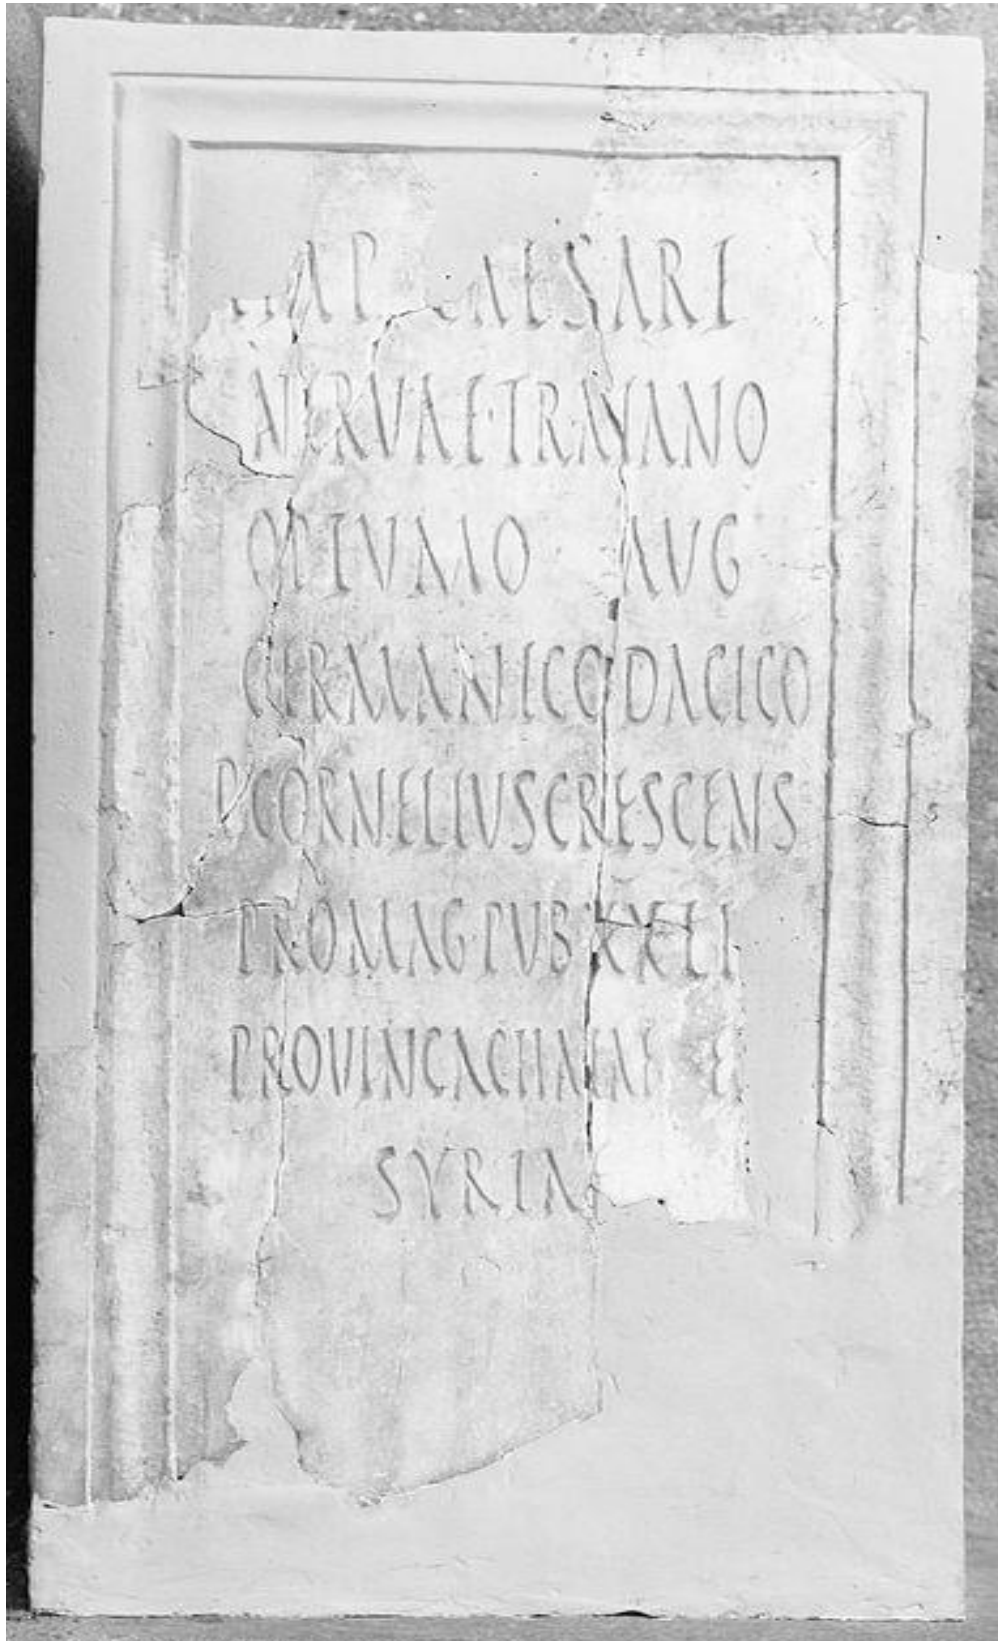 IMP CAESARI
NERVAE TRAIANO
OPTVMO AUG
GERMANICO DACICO
P CORNELIVS CRESCENS
PROMAG PVB XX LI
PROVINC ACHAIAE E
SYRIA